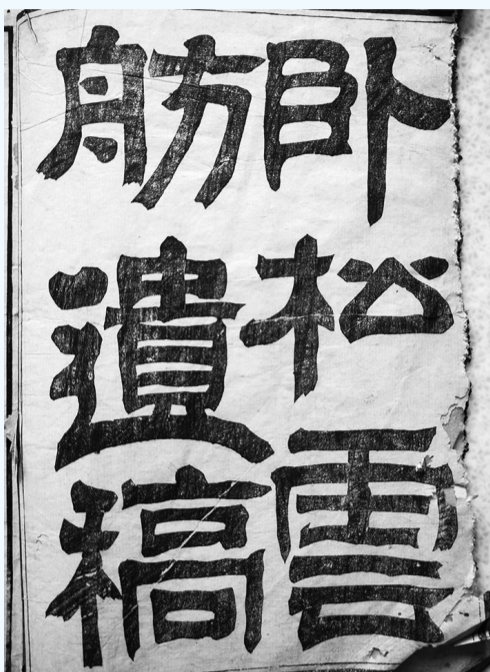 卧松雲
舫遺稿